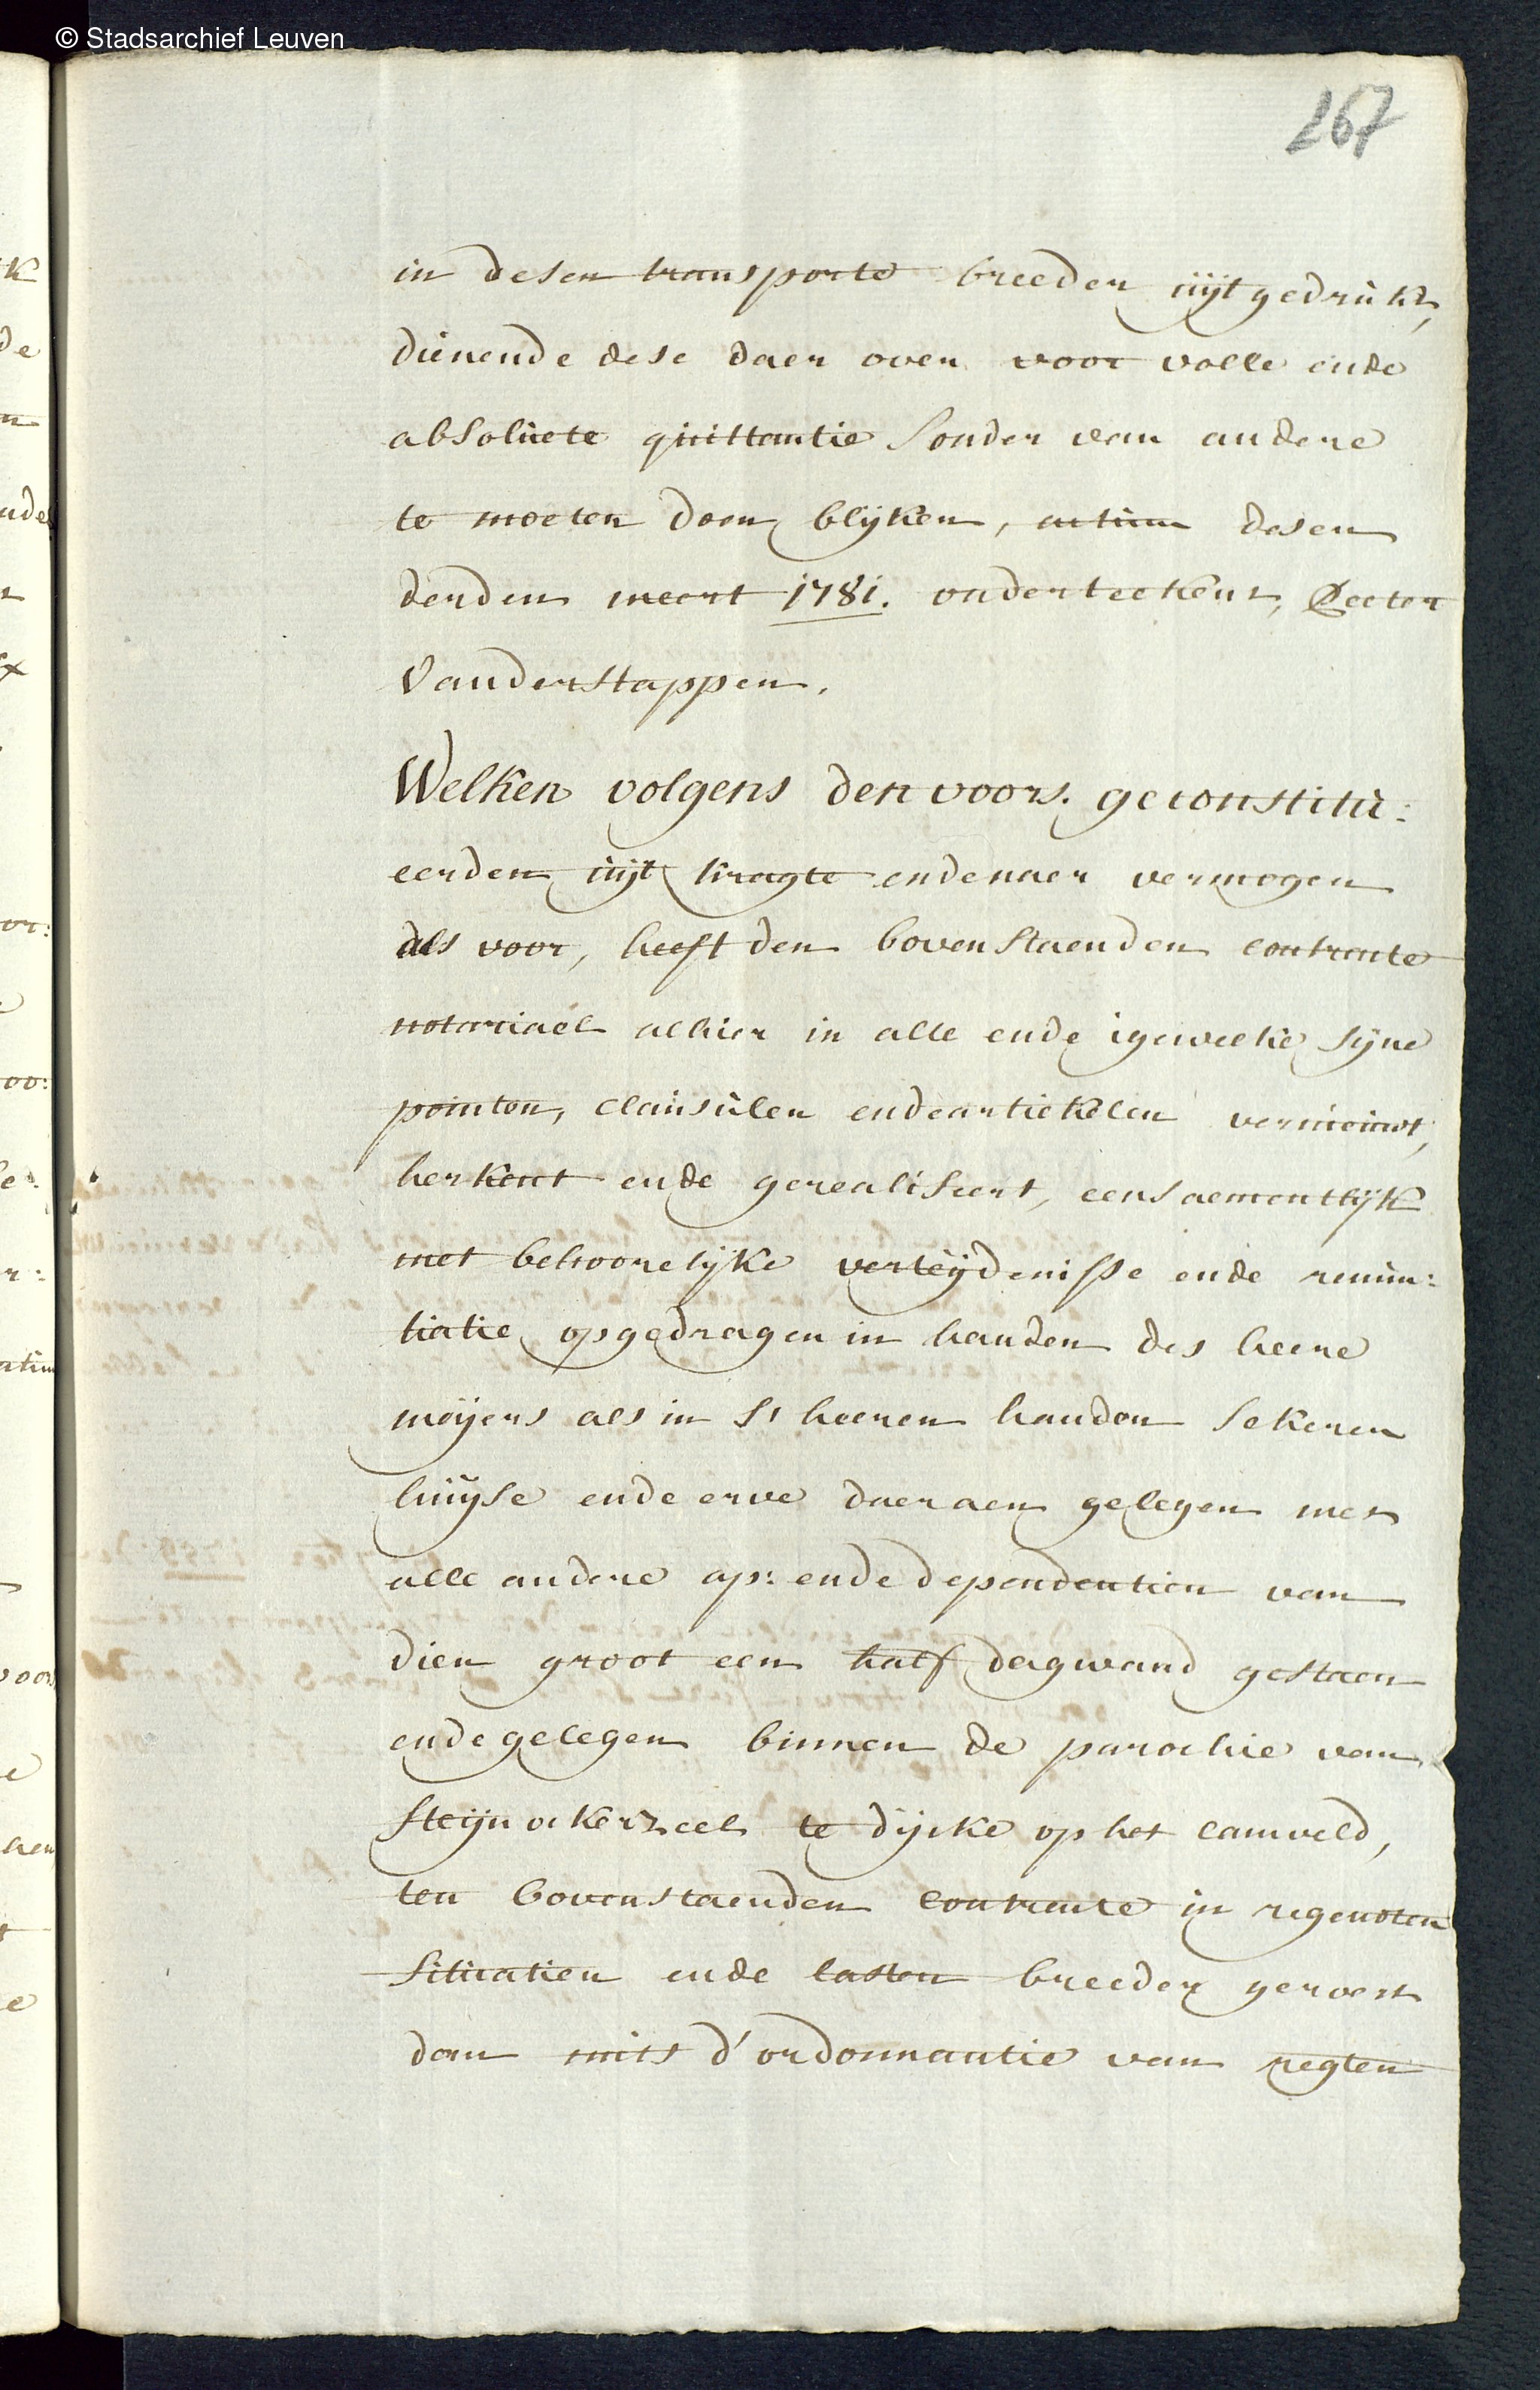 © Stadsarchief Leuven
267
in desen transporte breeder uijtgedrukt,
dienende dese daer over voor volle ende
absoluete quittantie sonder van andere
te moeten doen blijken, actum desen
derden meert 1781. onderteekent, Peeter
Vanderstappen.
Welken volgens den voors. geconstitu:
eerden uijt kragte ende naer vermogen
als voor, heeft den bovenstaenden contracte
notariael alhier in alle ende igewelke sijne
pointen, clausulen ende artiekelen vernieuwt,
herkent ende gerealiseert, eensaementlijk
met behoorelijke verteijdenisse ende renun:
tiatie opgedragen in handen des heere
meijers als in s' heeren handen sekeren
huijse ende erve daer aen gelegen met
alle andere ap: ende dependentien van
dien groot een half dagwand gestaen
ende gelegen binnen de parochie van
steijnockerzeel te dijcke op het camveld,
ten bovenstaenden contracte in regenoten
situatien ende lasten breeder geroert
dan mits d'ordonnantie van regten